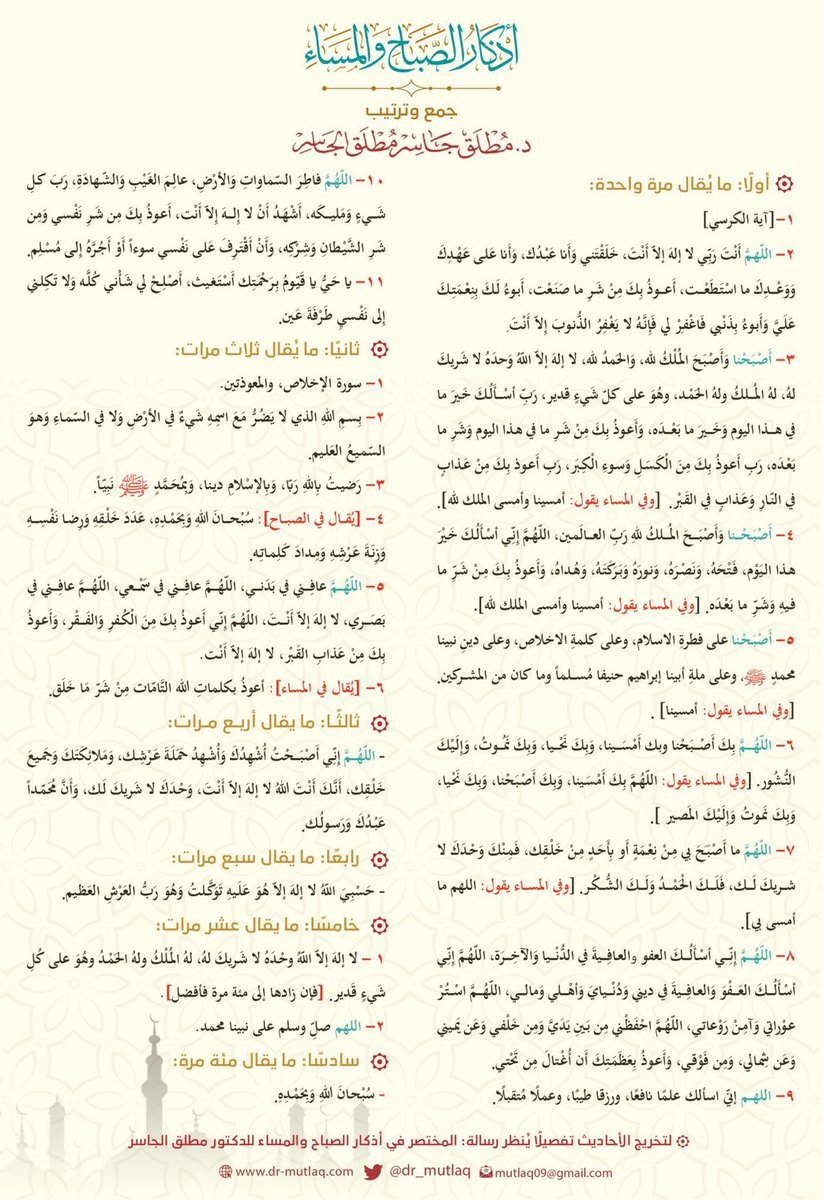 أذكار الصباح والمساء
جمع وترتيب
د. مُطلَق جاسِر مُطلَق الجاسِر
أولًا: ما يُقال مرة واحدة:
١- [آية الكرسي]
٢- اللّهمَّ أَنْتَ رَبِّي لا إلهَ إلاّ أَنْتَ، خَلَقْتَني وَأَنا عَبْدُك، وَأَنا عَلى عَهْدِكَ
وَوَعْدِكَ ما اسْتَطَعْت، أَعوذُ بِكَ مِنْ شَرِ ما صَنَعْت، أَبوءُ لَكَ بِنِعْمَتِكَ
عَلَيَّ وَأَبوءُ بِذَنْبي فَاغْفِرْ لي فَإِنَّهُ لا يَغْفِرُ الذُّنوبَ إِلاّ أَنْتَ.
٣- أَصْبَحْنا وَأَصْبَحَ المُلْكُ لله، وَالحَمدُ لله، لا إلهَ إلاّ اللهُ وَحدَهُ لا شَريكَ
لهُ، لهُ المُلكُ ولهُ الحَمْد، وهُوَ على كلّ شَيءٍ قدير، رَبِّ أسْألُكَ خَيرَ ما
في هذا اليوم وَخَيرَ ما بَعْدَه، وَأَعوذُ بِكَ مِنْ شَرِ ما في هذا اليوم وَشَرِ ما
بَعْدَه، رَبِ أَعوذُ بِكَ مِنَ الْكَسَلِ وَسوءِ الْكِبَر، رَبِ أعوذ بِكَ مِنْ عَذابٍ
في النّارِ وَعَذابٍ في القَبْر. [وفي المساء يقول: أمسينا وأمسى الملك لله].
٤- أَصْبَحْنا وَأَصْبَحَ المُلكُ للهِ رَبِّ العالَمين، اللهُمَّ إِنِّي أسْألُكَ خَيْرَ
هذا اليَوْم، فَتْحَهُ، وَنَصْرَهُ، وَنورَهُ وَبَرَكَتَهُ، وَهُداهُ، وَأَعوذُ بِكَ مِنْ شَرِّ ما
فيهِ وَشَرِّ ما بَعْدَه. [وفي المساء يقول: أمسينا وأمسى الملك لله].
٥- أَصْبَحْنا على فطرةِ الاسلام، وعلى كلمةِ الاخلاص، وعلى دينِ نبينا
محمدٍ ﷺ، وعلى ملةِ أبينا إبراهيم حنيفا مُسلماً وما كان من المشركين.
[وفي المساء يقول: أمسينا] .
٦- اللّهُمَّ بِكَ أَصْبَحْنا وبك أَمْسَينا، وَبِكَ نَحْيا، وَبِكَ نَمُوتُ، وَإِلَيْكَ
النُّشُور. [وفي المساء يقول: اللهُمَّ بِكَ أَمْسَينا، وَبِكَ أَصْبَحْنا، وَبِكَ نَحْيا،
وَبِكَ نَموتُ وَإِلَيْكَ المَصير ].
٧- اللّهُمَّ ما أَصْبَحَ بي مِنْ نِعْمَةٍ أَو بِأَحَدٍ مِنْ خَلْقِك، فَمِنْكَ وَحْدَكَ لا
شريكَ لَك، فَلَكَ الْحَمْدُ وَلَكَ الشُّكْر. [وفي المساء يقول: اللهم ما
أمسى بي].
٨- اللّهُمَّ إِنِّي أسْألُكَ العفو والعافِيةَ في الدُّنْيا وَالآخِرَة، اللهُمَّ إِنِّي
أسْألُكَ العَفْوَ وَالعافِيةَ في ديني وَدُنْيايَ وَأهْلي وَمالي، اللّهُمَّ اسْتُرْ
عوْراتي وَآمِنْ رَوْعاتي، اللّهُمَّ احْفَظْني مِن بَينِ يَدَيَّ وَمِن خَلْفي وَعَن يَميني
وَعَن شِمالي، وَمِن فَوْقي، وَأَعوذُ بِعَظَمَتِكَ أَن أُغْتالَ مِن تَحْتي.
٩- اللهم إنِّي اسالك علمًا نافعًا، ورزقا طيبًا، وعملًا مُتقبلًا.
١٠- اللّهُمَّ فاطِرَ السّماواتِ وَالأرْضِ، عالِمَ الغَيْبِ وَالشّهادَةِ، رَبَ كلِ
شَيءٍ وَمَليكَه، أَشْهَدُ أَنْ لا إِلهَ إِلاّ أَنْت، أَعوذُ بِكَ مِن شَرِ نَفْسي وَمِن
شَرِ الشَّيْطانِ وَشِرْكِه، وَأَنْ أَقْتَرِفَ عَلى نَفْسي سوءاً أَوْ أَجُرَّهُ إِلى مُسْلِم.
١١- يا حَيُّ يا قَيّومُ بِرَحْمَتِك أسْتَغيث، أَصْلِحْ لي شَأْني كُلَّه وَلا تَكِلني
إِلى نَفْسي طَرْفَةَ عَين.
ثانيًا: ما يُقال ثلاث مرات:
١- سورة الإخلاص، والمعوذتين.
٢- بِسمِ اللهِ الذي لا يَضُرُّ مَعَ اسمِهِ شَيءٌ في الأرْضِ وَلا في السّماءِ وَهوَ
السّميعُ العَليم.
٣- رَضيتُ بِاللهِ رَبّا، وَبِالإسْلامِ دينا، وَبِمُحَمَّدٍ ﷺ نَبِيّاً.
٤- [يُقال في الصباح]: سُبْحانَ اللهِ وَبِحَمْدِه، عَدَدَ خَلْقِهِ وَرِضا نَفْسِهِ
وَزِنَةَ عَرْشِهِ وَمِدادَ كَلِماتِه.
٥- اللّهُمَّ عافِني في بَدَني، اللّهُمَّ عافِني في سَمْعي، اللّهُمَّ عافِني في
بَصَري، لا إلهَ إلاّ أَنْتَ، اللّهُمَّ إِنِّي أَعوذُ بِكَ مِنَ الْكُفرِ وَالفَقْر، وَأَعوذُ
بِكَ مِنْ عَذابِ القَبْر، لا إلهَ إلاّ أَنْت.
٦- [يُقال في المساء]: أعوذُ بكلماتِ الله التَّامّات مِنْ شَرّ مَا خَلَق.
ثالثًا: ما يقال أربع مرات:
- اللّهُمَّ إِنِّي أَصْبَحْتُ أُشْهِدُكَ وَأُشْهِدُ حَمَلَةَ عَرْشِك، وَمَلائِكَتَكَ وَجَميعَ
خَلْقِك، أَنَّكَ أَنْتَ اللهُ لا إلهَ إلاّ أَنْتَ، وَحْدَكَ لا شَريكَ لَك، وَأَنَّ مُحَمّداً
عَبْدُكَ وَرَسولُك.
رابعًا: ما يقال سبع مرات:
- حَسْبِيَ اللهُ لا إلهَ إلاّ هُوَ عَلَيهِ تَوَكَّلتُ وَهُوَ رَبُّ العَرْشِ العَظيم.
خامسًا: ما يقال عشر مرات:
١ - لا إلهَ إلاّ اللهُ وَحْدَهُ لا شَريكَ لهُ، لهُ المُلْكُ ولهُ الحَمْدُ وهُوَ على كُلِ
شَيءٍ قَدير. [فإن زادها إلى مئة مرة فأفضل].
٢- اللهم صلّ وسلم على نبينا محمد.
سادسًا: ما يقال مئة مرة:
- سُبْحانَ اللهِ وَبِحَمْدِهِ.
لتخريج الأحاديث تفصيلًا يُنظر رسالة: المختصر في أذكار الصباح والمساء للدكتور مطلق الجاسر
www.dr-mutlaq.com @dr_mutlaq mutlaq09@gmail.com